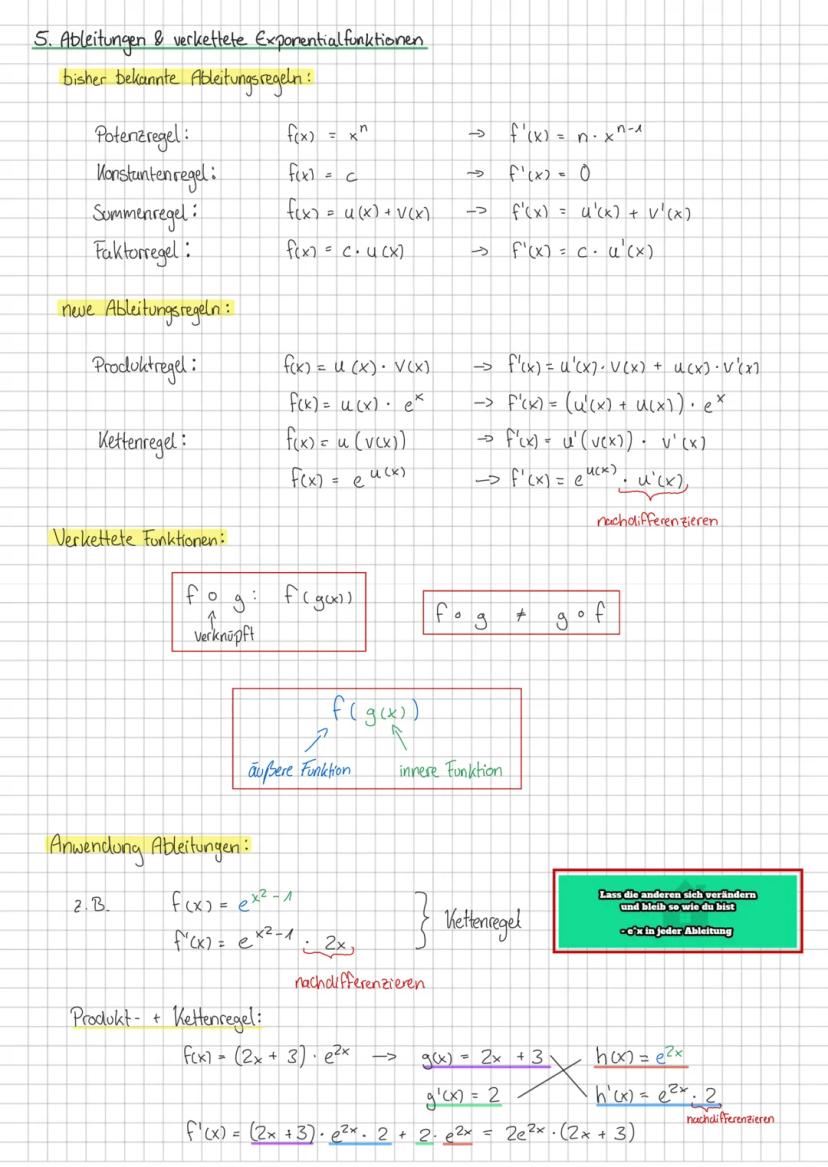 5. Ableitungen & verkettete Exponentialfunktionen
bisher bekannte Ableitungsregeln:
Potenzregel: f(x) = xⁿ → f'(x) = n · xⁿ⁻¹
Konstantenregel: f(x) = c → f'(x) = 0
Summenregel: f(x) = u(x) + v(x) → f'(x) = u'(x) + v'(x)
Faktorregel: f(x) = c · u(x) → f'(x) = c · u'(x)
neue Ableitungsregeln:
Produktregel: f(x) = u(x) · v(x) → f'(x) = u'(x) · v(x) + u(x) · v'(x)
f(x) = u(x) · e^x → f'(x) = (u'(x) + u(x)) · e^x
Kettenregel: f(x) = u(v(x)) → f'(x) = u'(v(x)) · v'(x)
f(x) = e^u(x) → f'(x) = e^u(x) · u'(x)
nachdifferenzieren
Verkettete Funktionen:
f ∘ g: f(g(x))
verknüpft
f ∘ g ≠ g ∘ f
f(g(x))
äußere Funktion innere Funktion
Anwendung Ableitungen:
z.B. f(x) = e^x²-1
f'(x) = e^x²-1 · 2x
} Kettenregel
nachdifferenzieren
Lass die anderen sich verändern
und bleib so wie du bist
- e^x in jeder Ableitung
Produkt- + Kettenregel:
f(x) = (2x + 3) · e^2x → g(x) = 2x + 3 h(x) = e^2x
g'(x) = 2 h'(x) = e^2x · 2
nachdifferenzieren
f'(x) = (2x + 3) · e^2x · 2 + 2 · e^2x = 2e^2x · (2x + 3)